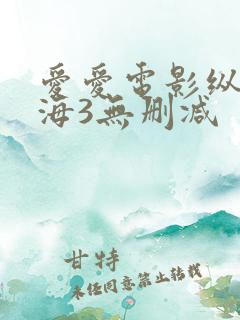 愛愛電影纵
海3無删减
甘特
未经同意禁止转载